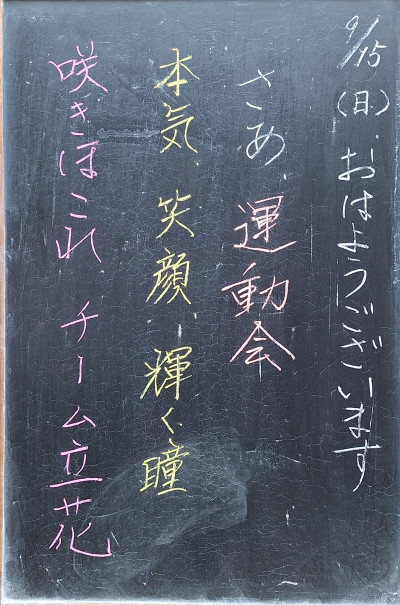 9/15(日)、おはようございます
さあ、運動会
本気、笑顔、輝く瞳
咲きほこれ、チーム立花